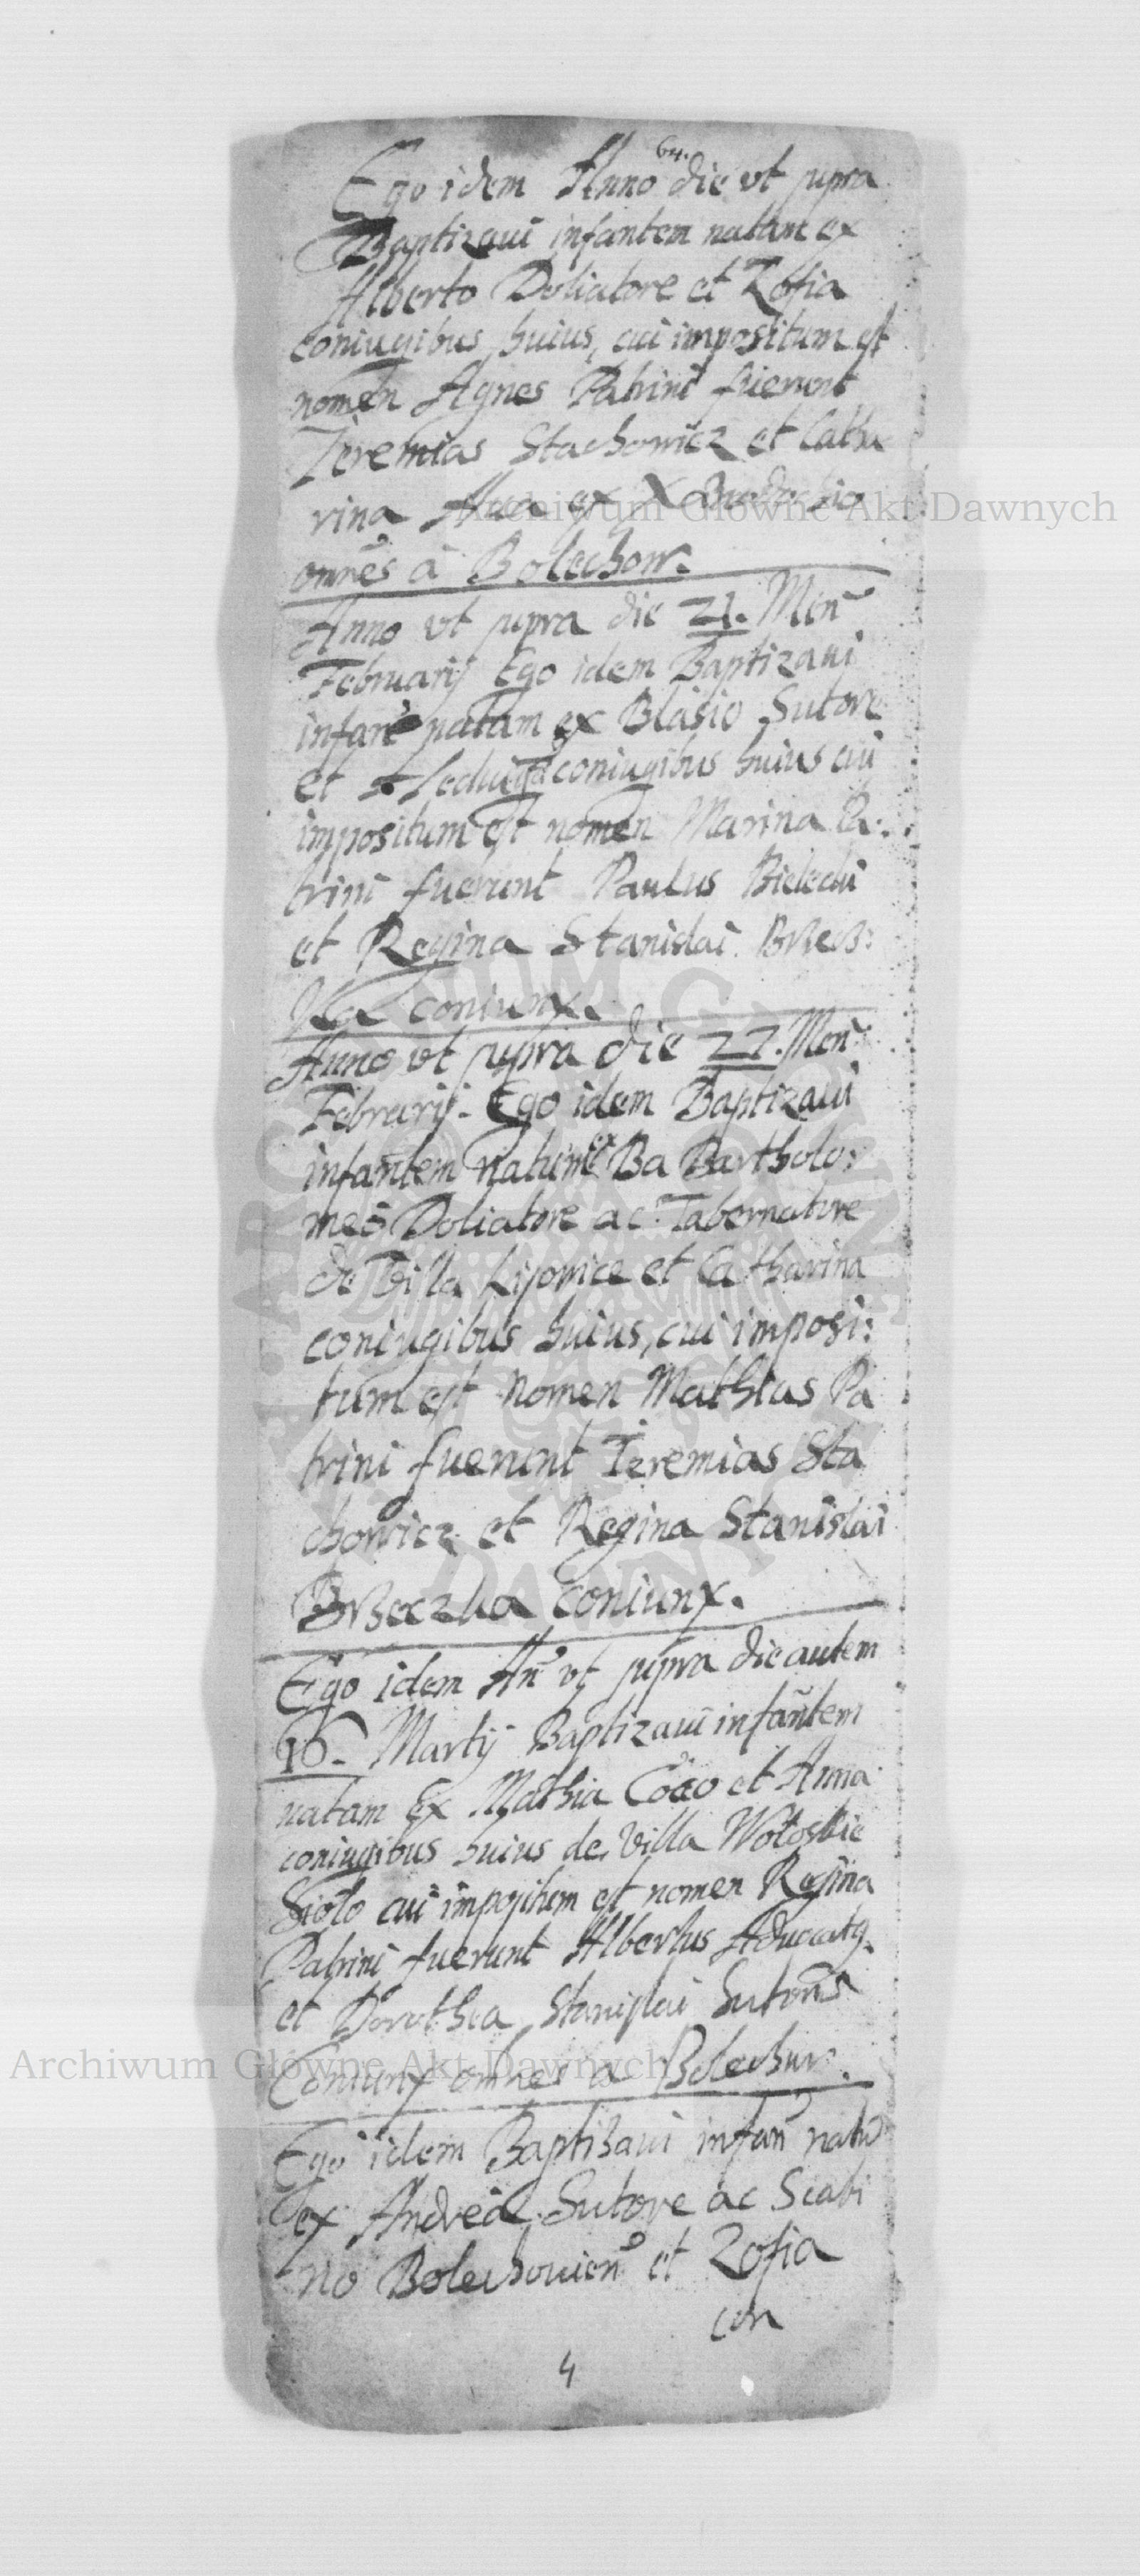 64.
Ego idem Anno die ut supra
Baptizaui infantem natam ex
Alberto Doliatore et Zofia
coniugibus huius, cui impositum est
nomen Agnes Patrini fuerunt
Jeremias Stachowicz et Catha
rina
omnes à Bolechow.
Anno ut supra die 21. Men
Februarij Ego idem Baptizaui
infan natam ex Blasio Sutore
et coniugibus huius cui
impositum est nomen Marina Pa:
trini fuerunt Paulus Bielecki
et Regina Stanislai
coniunx.
Anno ut supra die 22. Men:
Februrij. Ego idem Baptizaui
infantem natum ex Ba Bartholo:
meo Doliatore ac Tabernatore
de Villa Lisowice et Catharina
coniugibus huius, cui imposi:
tum est nomen Mathias Pa
trini fuerunt Jeremias Sta
chowicz et Regina Stanislai
coniunx.
Ego idem An ut supra die autem
16. Martij Baptizaui infantem
natam Ex Mathia Coco et Anna
coniugibus huius de Villa Wołoskie
Sioło cui impositum est nomen Regina
Patrini fuerunt Albertus Aduocatg.
et Dorothea Stanislai Sutoris
Coniunx omnes a Bolechow.
Ego idem Baptisaui infan natu
ex Andrea Sutore ac Scabi
no Bolechouien et Zofia
con
4
Archiwum Główne Akt Dawnych
Archiwum Główne Akt Dawnych